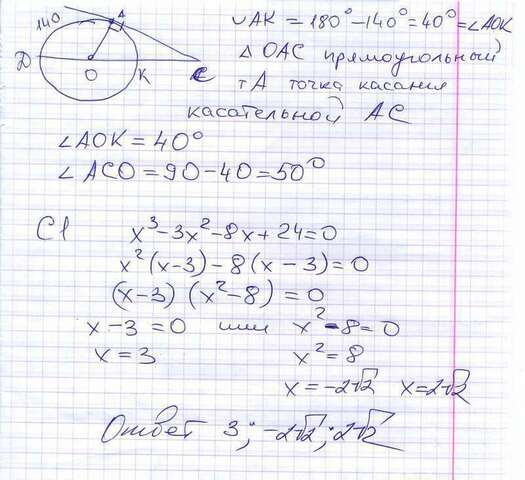 140
А
Д
О
К
С
∪AK = 180° - 140° = 40° = ∠AOK
Δ OAC прямоугольный
тА точка касания
касательной AC
∠AOK = 40°
∠ACO = 90 - 40 = 50°
C1
x³ - 3x² - 8x + 24 = 0
x²(x - 3) - 8(x - 3) = 0
(x - 3) (x² - 8) = 0
x - 3 = 0 или x² - 8 = 0
x = 3 x² = 8
x = -2√2 x = 2√2
Ответ 3; -2√2; 2√2